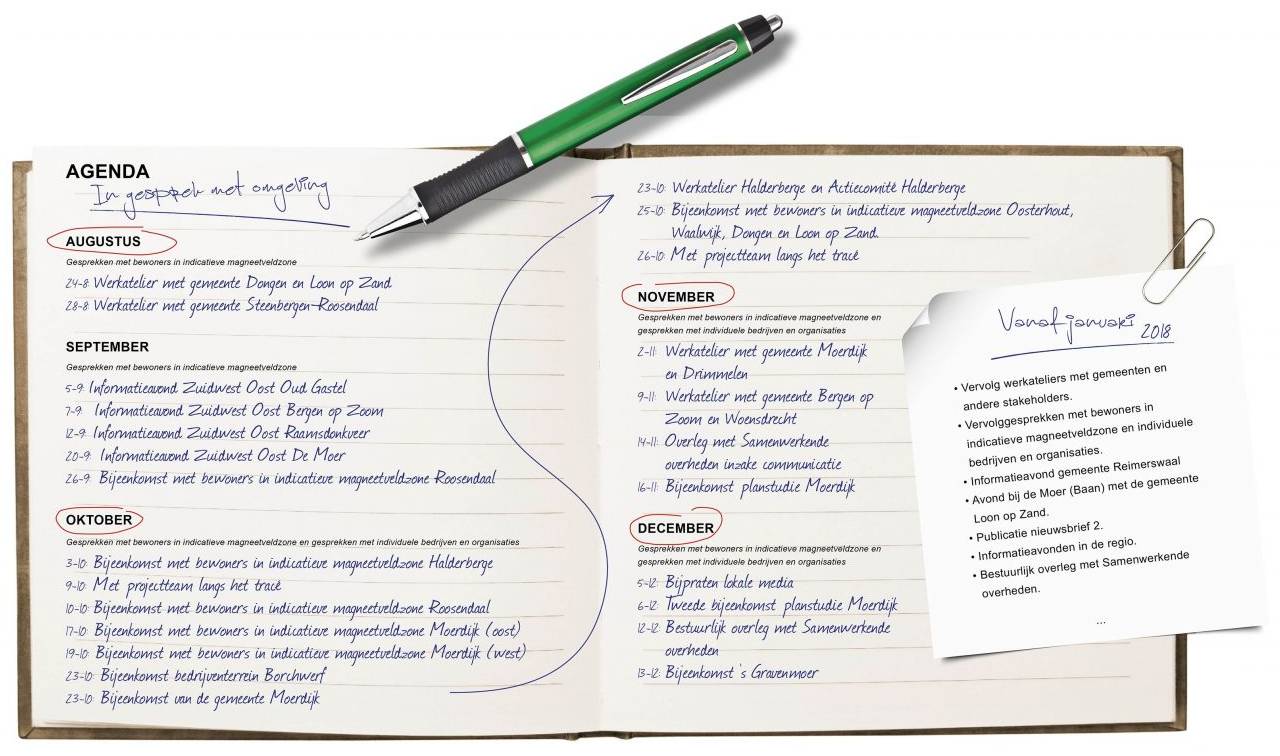 AGENDA
In gesprek met omgeving
AUGUSTUS
Gesprekken met bewoners in indicatieve magneetveldzone
24-8 Werkatelier met gemeente Dongen en Loon op Zand
28-8 Werkatelier met gemeente Steenbergen-Roosendaal
SEPTEMBER
Gesprekken met bewoners in indicatieve magneetveldzone
5-9: Informatieavond Zuidwest Oost Oud Gastel
7-9: Informatieavond Zuidwest Oost Bergen op Zoom
12-9: Informatieavond Zuidwest Oost Raamsdonkveer
20-9: Informatieavond Zuidwest Oost De Moer
26-9: Bijeenkomst met bewoners in indicatieve magneetveldzone Roosendaal
OKTOBER
Gesprekken met bewoners in indicatieve magneetveldzone en gesprekken met individuele bedrijven en organisaties
3-10: Bijeenkomst met bewoners in indicatieve magneetveldzone Halderberge
9-10: Met projectteam langs het tracé
10-10: Bijeenkomst met bewoners in indicatieve magneetveldzone Roosendaal
17-10: Bijeenkomst met bewoners in indicatieve magneetveldzone Moerdijk (oost)
19-10: Bijeenkomst met bewoners in indicatieve magneetveldzone Moerdijk (west)
23-10: Bijeenkomst bedrijventerrein Borchwerf
23-10: Bijeenkomst van de gemeente Moerdijk
23-10: Werkatelier Halderberge en Actiecomité Halderberge
25-10: Bijeenkomst met bewoners in indicatieve magneetveldzone Oosterhout,
Waalwijk, Dongen en Loon op Zand.
26-10: Met projectteam langs het tracé
NOVEMBER
Gesprekken met bewoners in indicatieve magneetveldzone en
gesprekken met individuele bedrijven en organisaties
2-11: Werkatelier met gemeente Moerdijk
en Drimmelen
9-11: Werkatelier met gemeente Bergen op
Zoom en Woensdrecht
14-11: Overleg met Samenwerkende
overheden inzake communicatie
16-11: Bijeenkomst planstudie Moerdijk
DECEMBER
Gesprekken met bewoners in indicatieve magneetveldzone en
gesprekken met individuele bedrijven en organisaties
5-12: Bijpraten lokale media
6-12: Tweede bijeenkomst planstudie Moerdijk
12-12: Bestuurlijk overleg met Samenwerkende
overheden
13-12: Bijeenkomst 's Gravenmoer
Vanaf januari
2018
• Vervolg werkateliers met gemeenten en
andere stakeholders.
• Vervolggesprekken met bewoners in
indicatieve magneetveldzone en individuele
bedrijven en organisaties.
• Informatieavond gemeente Reimerswaal
• Avond bij de Moer (Baan) met de gemeente
Loon op Zand.
• Publicatie nieuwsbrief 2.
• Informatieavonden in de regio.
• Bestuurlijk overleg met Samenwerkende
overheden.
...